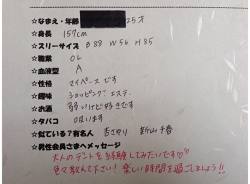 ☆なまえ・年齢 25才
☆身長 157cm
☆スリーサイズ B88 W56 H85
☆職業 OL
☆血液型 A
☆性格 マイペースです
☆趣味 ショッピング、エステ
☆お酒 弱いけど好きです
☆タバコ 吸います
☆似ている？有名人 杏さゆり 新山千春
☆男性会員さまへメッセージ
大人のデートを経験してみたいです♡♡
色々教えて下さい！楽しい時間を過ごしましょう！！